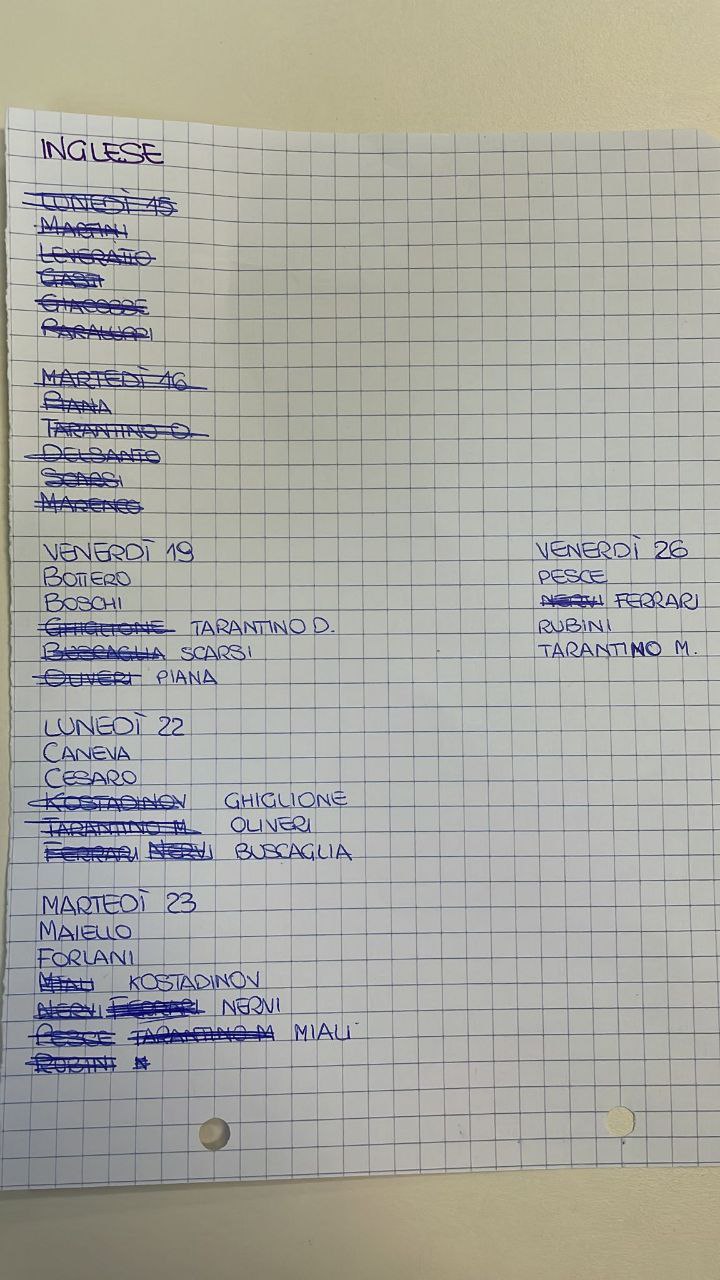 INGLESE
LUNEDÌ 15
MARTINI
LEVERATTO
GIACOBBE
MARTEDÌ 16
PIANA
TARANTINO D.
DELSANTO
SCARSI
MARENCO
VENERDÌ 19
BOTTERO
BOSCHI
GHIGLIONE TARANTINO D.
BUSCAGLIA SCARSI
OLIVERI PIANA
LUNEDÌ 22
CANEVA
CESARO
KOSTADINOV GHIGLIONE
TARANTINO M. OLIVERI
FERRARI NERVI BUSCAGLIA
MARTEDÌ 23
MAIELLO
FORLANI
MIALI KOSTADINOV
NERVI FERRARI NERVI
PESCE TARANTINO M MIALI
RUBINI
VENERDÌ 26
PESCE
NERVI FERRARI
RUBINI
TARANTINO M.